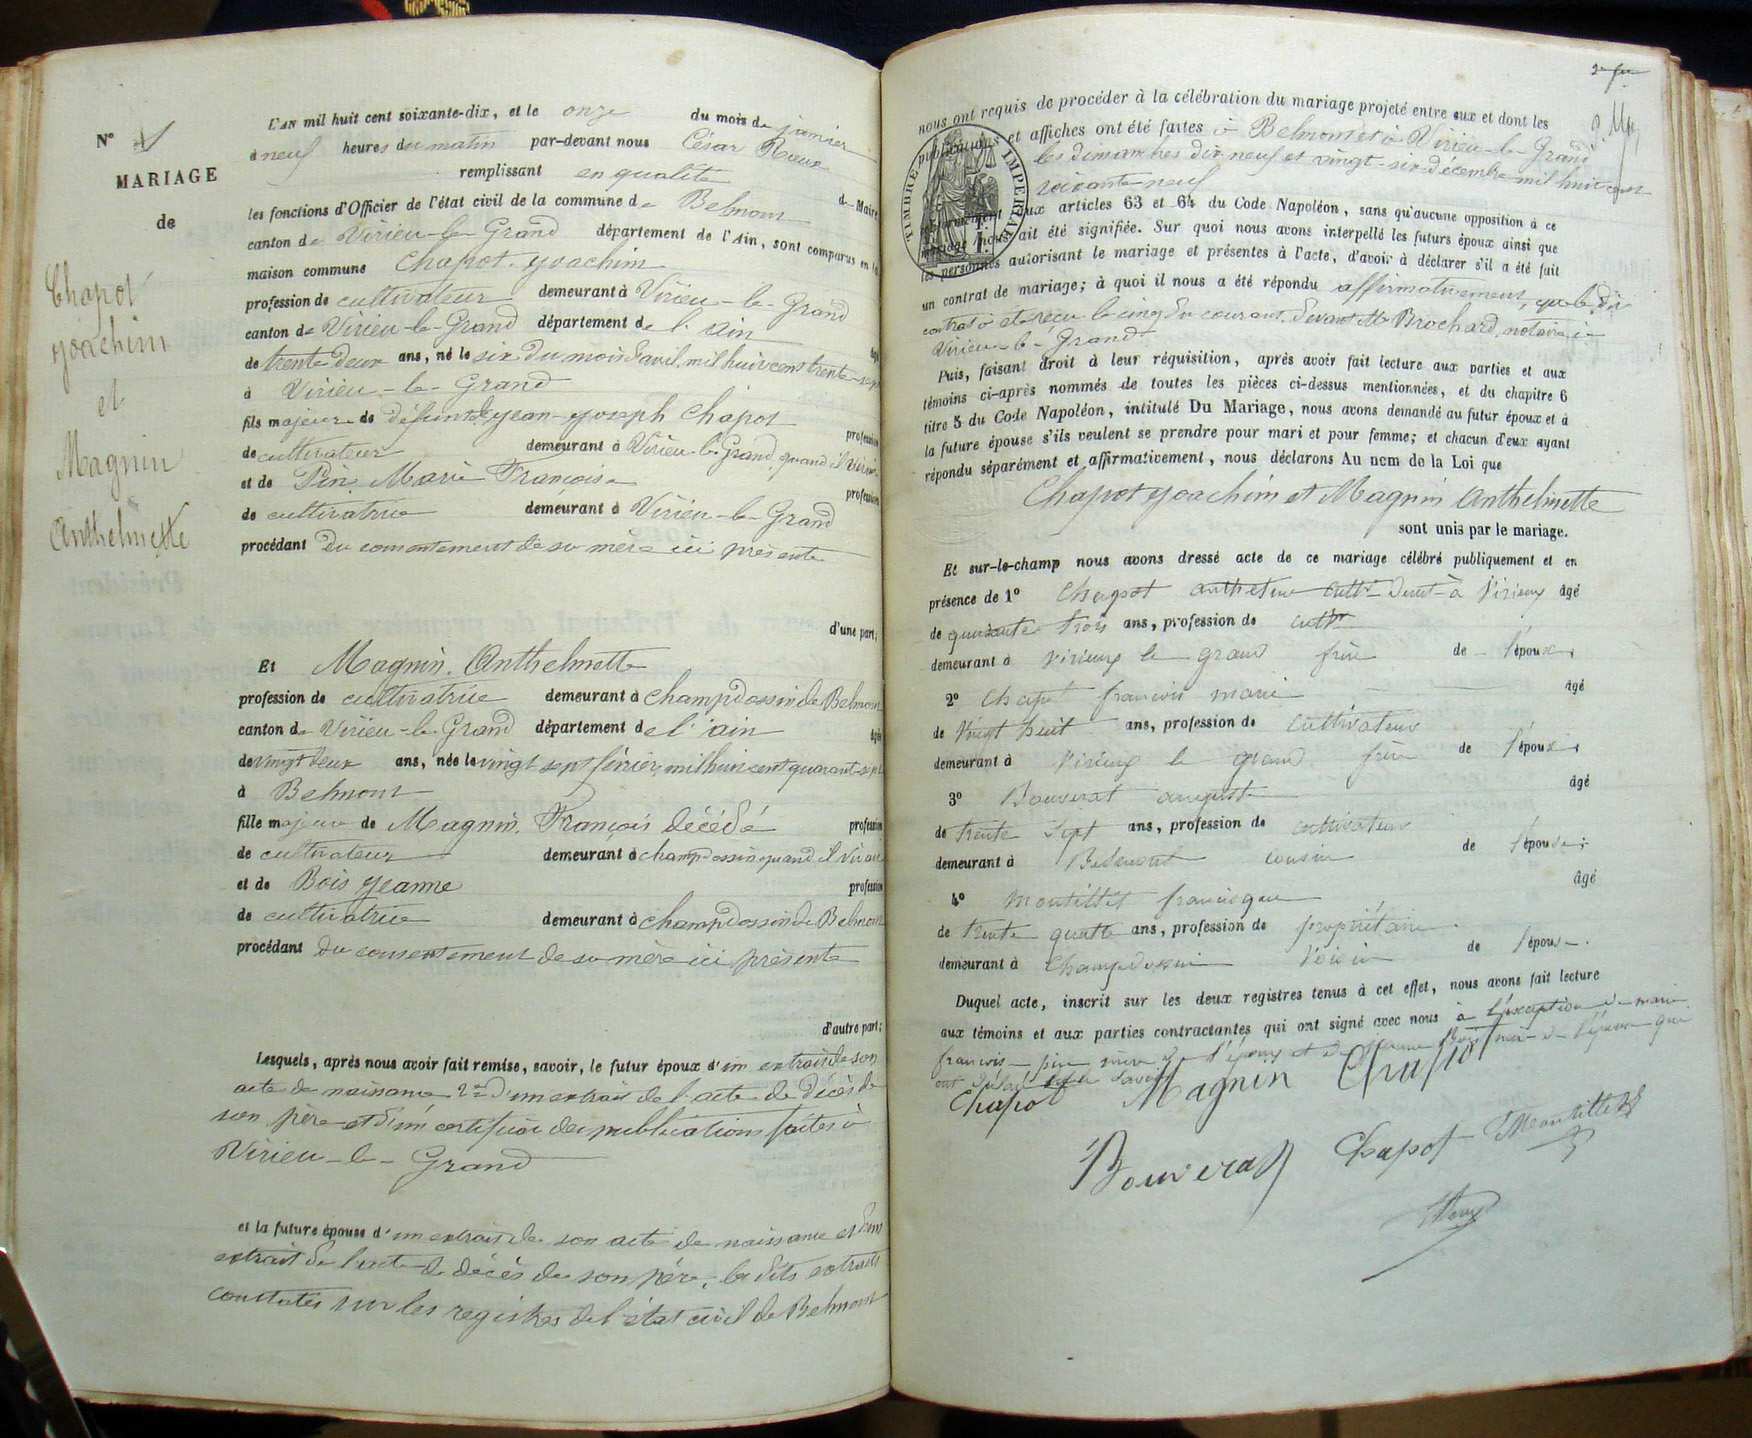 N° 1
MARIAGE
de
Chapot
Joachim
et
Magnin
Anthelmette
L'AN mil huit cent soixante-dix, et le onze du mois de janvier
à neuf heures du matin par-devant nous César Roux
remplissant en qualité de Maire
les fonctions d'Officier de l'état civil de la commune de Belmont
canton de Virieu-le-Grand département de l'Ain, sont comparus en la
maison commune Chapot Joachim
profession de cultivateur demeurant à Virieu-le-Grand
canton de Virieu-le-Grand département de l'ain âgé
de trente deux ans, né le six du mois d'avril mil huit cent trente-sept
à Virieu-le-Grand
fils majeur de défunt Jean-Joseph Chapot profession
de cultivateur demeurant à Virieu-le-Grand quand il vivait
et de Pin Marie Françoise profession
de cultivatrice demeurant à Virieu-le-Grand
procédant du consentement de sa mère ici présente
d'une part;
Et Magnin Anthelmette
profession de cultivatrice demeurant à Champdossin de Belmont
canton de Virieu-le-Grand département de l'ain âgée
de vingt deux ans, née le vingt sept février mil huit cent quarante-sept
à Belmont
fille majeure de Magnin François décédé profession
de cultivateur demeurant à champdossin quand il vivait
et de Bois Jeanne profession
de cultivatrice demeurant à champdossin de Belmont
procédant du consentement de sa mère ici présente
d'autre part;
Lesquels, après nous avoir fait remise, savoir, le futur époux d'un extrait de son
acte de naissance 2° d'un extrait de l'acte de décès de
son père et d'un certificat des publications faites à
Virieu-le-Grand
et la future épouse d'un extrait de son acte de naissance et d'un
extrait de l'acte de décès de son père, les dits extraits
constatés sur les registres de l'état civil de Belmont
nous ont requis de procéder à la célébration du mariage projeté entre eux et dont les
publications et affiches ont été faites à Belmont et à Virieu-le-Grand
les dimanches dix neuf et vingt-six décembre mil huit cent
soixante-neuf
TIMBRE IMPERIAL
conformément aux articles 63 et 64 du Code Napoléon, sans qu'aucune opposition à ce
mariage nous ait été signifiée. Sur quoi nous avons interpellé les futurs époux ainsi que
les personnes autorisant le mariage et présentes à l'acte, d'avoir à déclarer s'il a été fait
un contrat de mariage; à quoi il nous a été répondu affirmativement, que le dit
contrat a été reçu le cinq du courant devant Me Brochard, notaire à
Virieu-le-Grand
Puis, faisant droit à leur réquisition, après avoir fait lecture aux parties et aux
témoins ci-après nommés de toutes les pièces ci-dessus mentionnées, et du chapitre 6
titre 5 du Code Napoléon, intitulé Du Mariage, nous avons demandé au futur époux et à
la future épouse s'ils veulent se prendre pour mari et pour femme; et chacun d'eux ayant
répondu séparément et affirmativement, nous déclarons Au nom de la Loi que
Chapot Joachim et Magnin Anthelmette
sont unis par le mariage.
Et sur-le-champ nous avons dressé acte de ce mariage célébré publiquement et en
présence de 1° Chapot cultr demt à Virieux âgé
de quarante trois ans, profession de cultr
demeurant à Virieux le grand frère de l'époux;
2° Chapot françois marie âgé
de Vingt huit ans, profession de cultivateur
demeurant à Virieux le grand frère de l'époux;
3° Bouverat auguste âgé
de trente sept ans, profession de cultivateur
demeurant à Belmont cousin de l'épouse;
4° Montillet francisque âgé
de trente quatre ans, profession de propriétaire
demeurant à Champdossin Voisin de l'épouse.
Duquel acte, inscrit sur les deux registres tenus à cet effet, nous avons fait lecture
aux témoins et aux parties contractantes qui ont signé avec nous à l'exception de marie
françoise pin mère de l'époux et de Jeanne Bois mère de l'épouse qui
Chapot Magnin Chapot
Bouverat Chapot Montillet
Roux